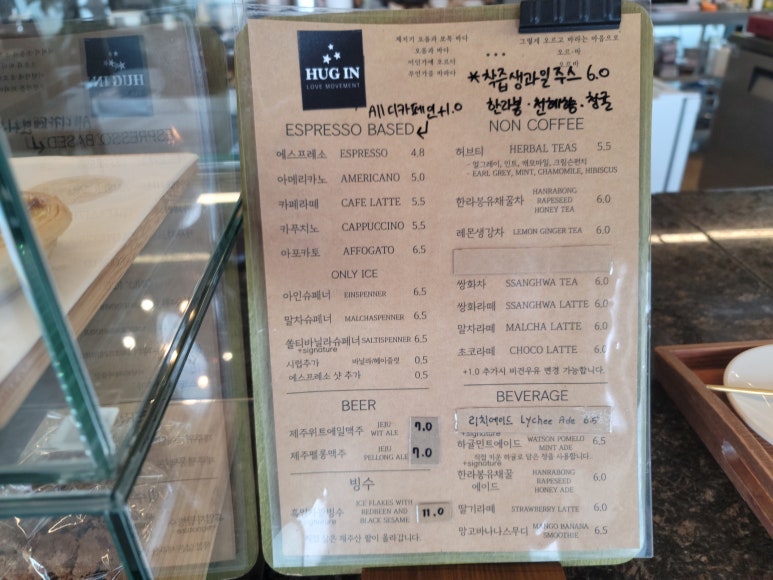 HUG IN
LOVE MOVEMENT
제지기 오름과 보목 바다
오름과 바다
그렇게 오르고 바라는 마음으로
오르·바
오르바
*착즙생과일쥬스 6.0
한라봉·천혜향·청귤
All 디카페인+1.0
ESPRESSO BASED
에스프레소 ESPRESSO 4.8
아메리카노 AMERICANO 5.0
카페라떼 CAFE LATTE 5.5
카푸치노 CAPPUCCINO 5.5
아포카토 AFFOGATO 6.5
ONLY ICE
아인슈페너 EINSPENNER 6.5
말차슈페너 MALCHASPENNER 6.5
쏠티바닐라슈페너 SALTISPENNER 6.5
+signature
시럽추가 바닐라/헤이즐럿 0.5
에스프레소 샷 추가 0.5
BEER
제주위트에일맥주 JEJU WIT ALE 7.0
제주펠롱맥주 JEJU PELLONG ALE 7.0
빙수
ICE FLAKES WITH REDBEEN AND BLACK SESAME 11.0
+signature
제주산 팥이 올라갑니다.
NON COFFEE
허브티 HERBAL TEAS 5.5
- 얼그레이, 민트, 캐모마일, 크림슨펀치
- EARL GREY, MINT, CHAMOMILE, HIBISCUS
한라봉유채꿀차 HANRABONG RAPESEED HONEY TEA 6.0
레몬생강차 LEMON GINGER TEA 6.0
쌍화차 SSANGHWA TEA 6.0
쌍화라떼 SSANGHWA LATTE 6.0
말차라떼 MALCHA LATTE 6.0
초코라떼 CHOCO LATTE 6.0
+1.0 추가시 비건우유 변경 가능합니다.
BEVERAGE
리치에이드 Lychee Ade 6.5
+signature
하귤민트에이드 WATSON POMELO MINT ADE 6.5
직접 키운 하귤로 담은 청을 사용합니다.
+signature
한라봉유채꿀에이드 HANRABONG RAPESEED HONEY ADE 6.0
딸기라떼 STRAWBERRY LATTE 6.0
망고바나나스무디 MANGO BANANA SMOOTHIE 6.5